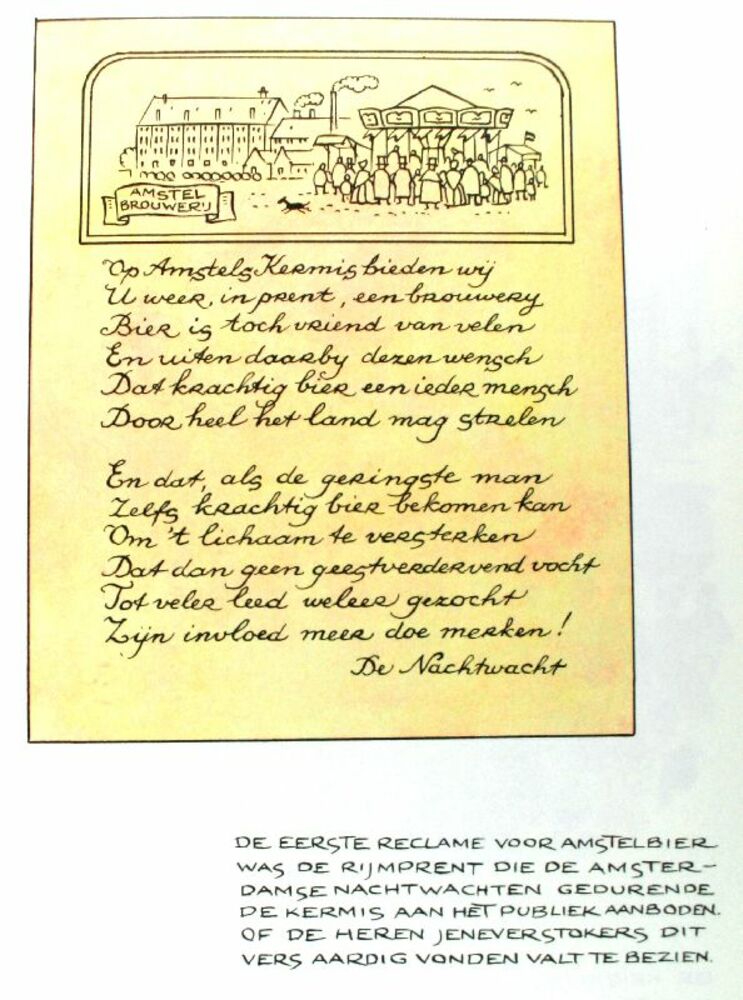 AMSTEL
BROUWERIJ
Op Amstels Kermis bieden wij
U weer, in prent, een brouwery
Bier is toch vriend van velen
En uiten daarby dezen wensch
Dat krachtig bier een ieder mensch
Door heel het land mag strelen
En dat, als de geringste man
Zelfs krachtig bier bekomen kan
Om 't lichaam te versterken
Dat dan geen geestverdervend vocht
Tot veler leed weleer gezocht
Zijn invloed meer doe merken!
De Nachtwacht
DE EERSTE RECLAME VOOR AMSTELBIER
WAS DE RIJMPRENT DIE DE AMSTER-
DAMSE NACHTWACHTEN GEDURENDE
DE KERMIS AAN HET PUBLIEK AANBODEN.
OF DE HEREN JENEVERSTOKERS DIT
VERS AARDIG VONDEN VALT TE BEZIEN.